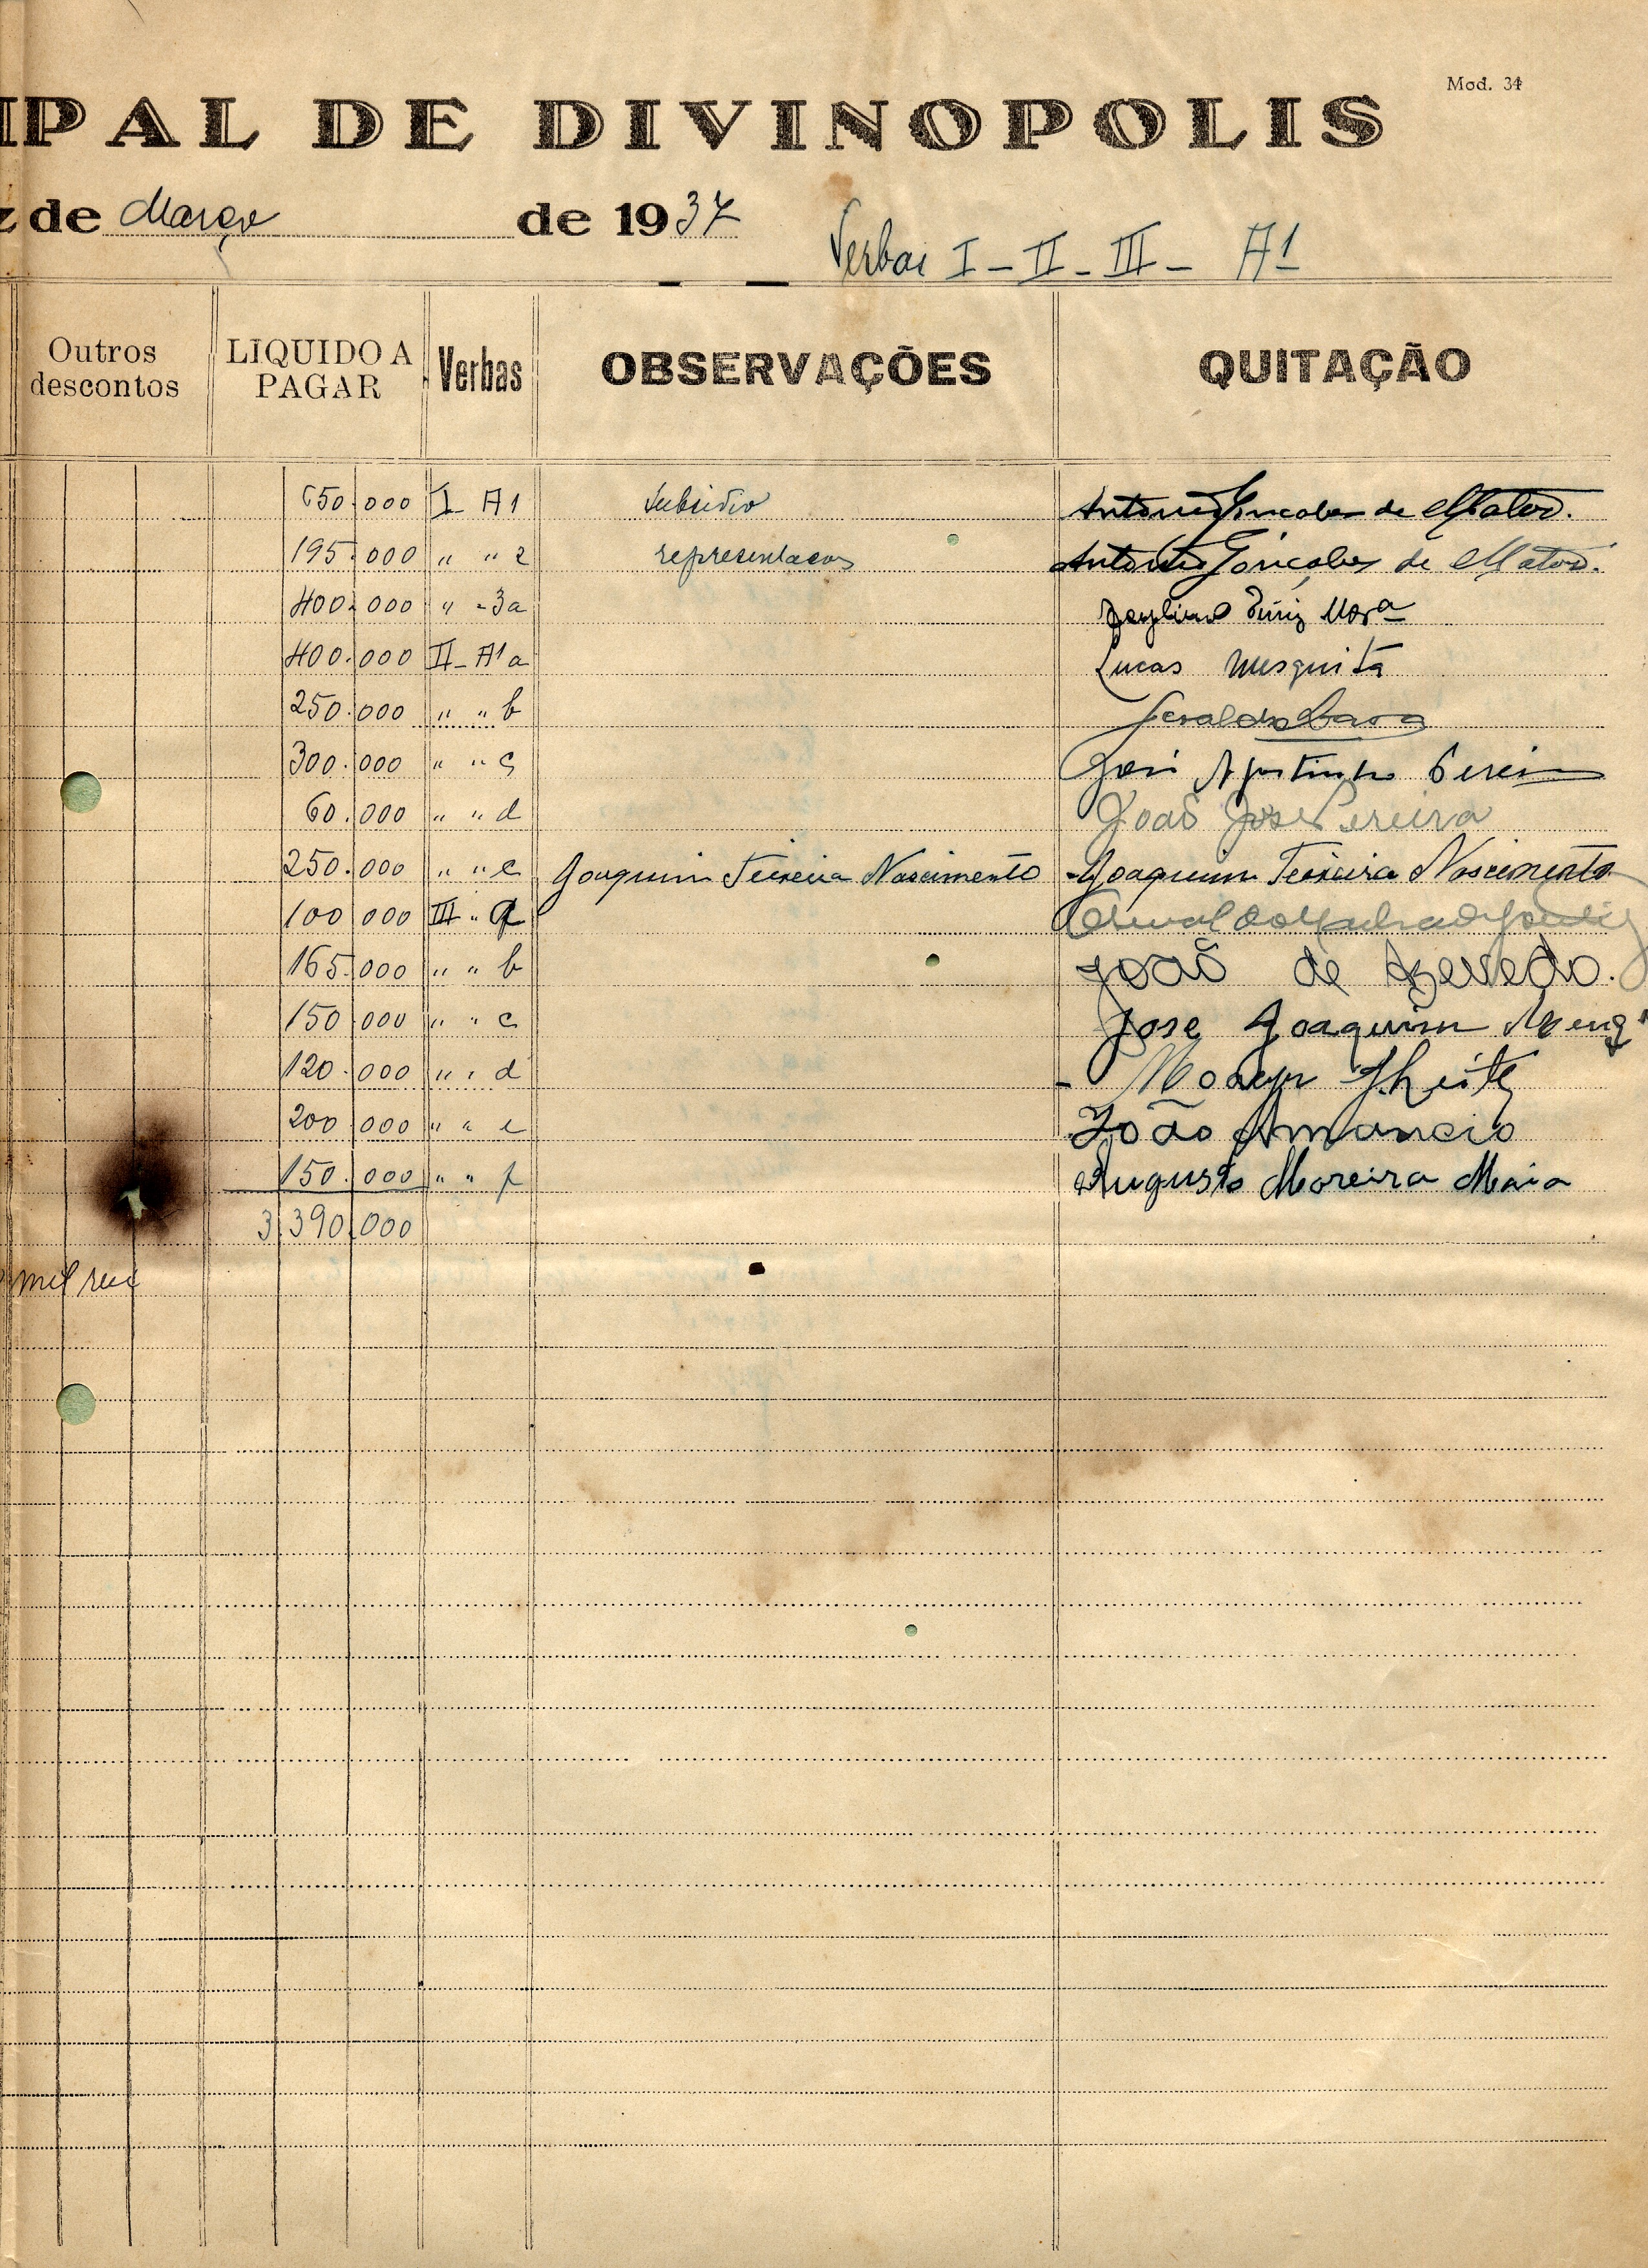 Mod. 34
IPAL DE DIVINOPOLIS
z de Março de 1937
Verbas I - II - III - A1
Outros descontos LIQUIDO A PAGAR Verbas OBSERVAÇÕES QUITAÇÃO
650.000 I A1 subsidio Antonio Gonçalves de Mattos.
195.000 " " 2 representacao Antonio Gonçalves de Mattos.
400.000 " - 3a Diniz
400.000 II - A1 a Lucas Mesquita
250.000 " " b Geraldo
300.000 " " c José Agostinho Pereira
60.000 " " d João José Pereira
250.000 " " e Joaquim Teixeira Nascimento Joaquim Teixeira Nascimento
100.000 III " a
165.000 " " b João de Azevedo.
150.000 " " c Jose Joaquim
120.000 " " d Moacyr
200.000 " " e João Amancio
150.000 " " f Augusto Moreira Maia
3.390.000
mil reis